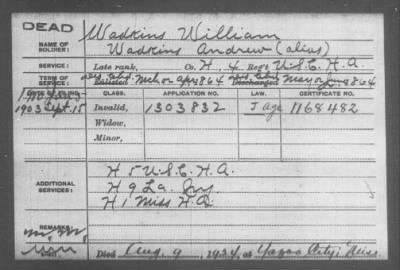 DEAD
Wadkins William
NAME OF SOLDIER: Wadkins Andrew (alias)
SERVICE: Late rank, Co. H, 4 Reg't U.S.C.H.A.
TERM OF SERVICE: Enlisted Mch or Apr 1864 Discharged May or 1864
DATE OF FILING. CLASS. APPLICATION NO. LAW. CERTIFICATE NO.
1903 Sept. 15 Invalid, 1303832 J age 1168482
Widow,
Minor,
H 5 U.S.C.H.A.
ADDITIONAL SERVICES: H 9 La. Inf
H 1 Miss H.A.
REMARKS:
Died Aug. 9, 1924, at Yazoo City, Miss.